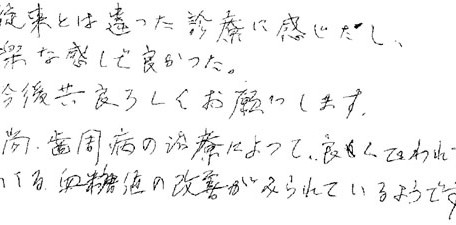 従来とは違った診療に感じだし、
楽な感じで良かった。
今後共良ろしくお願いします。
尚、歯周病の治療によって、良くいわれ
いる血糖値の改善がみられているようです